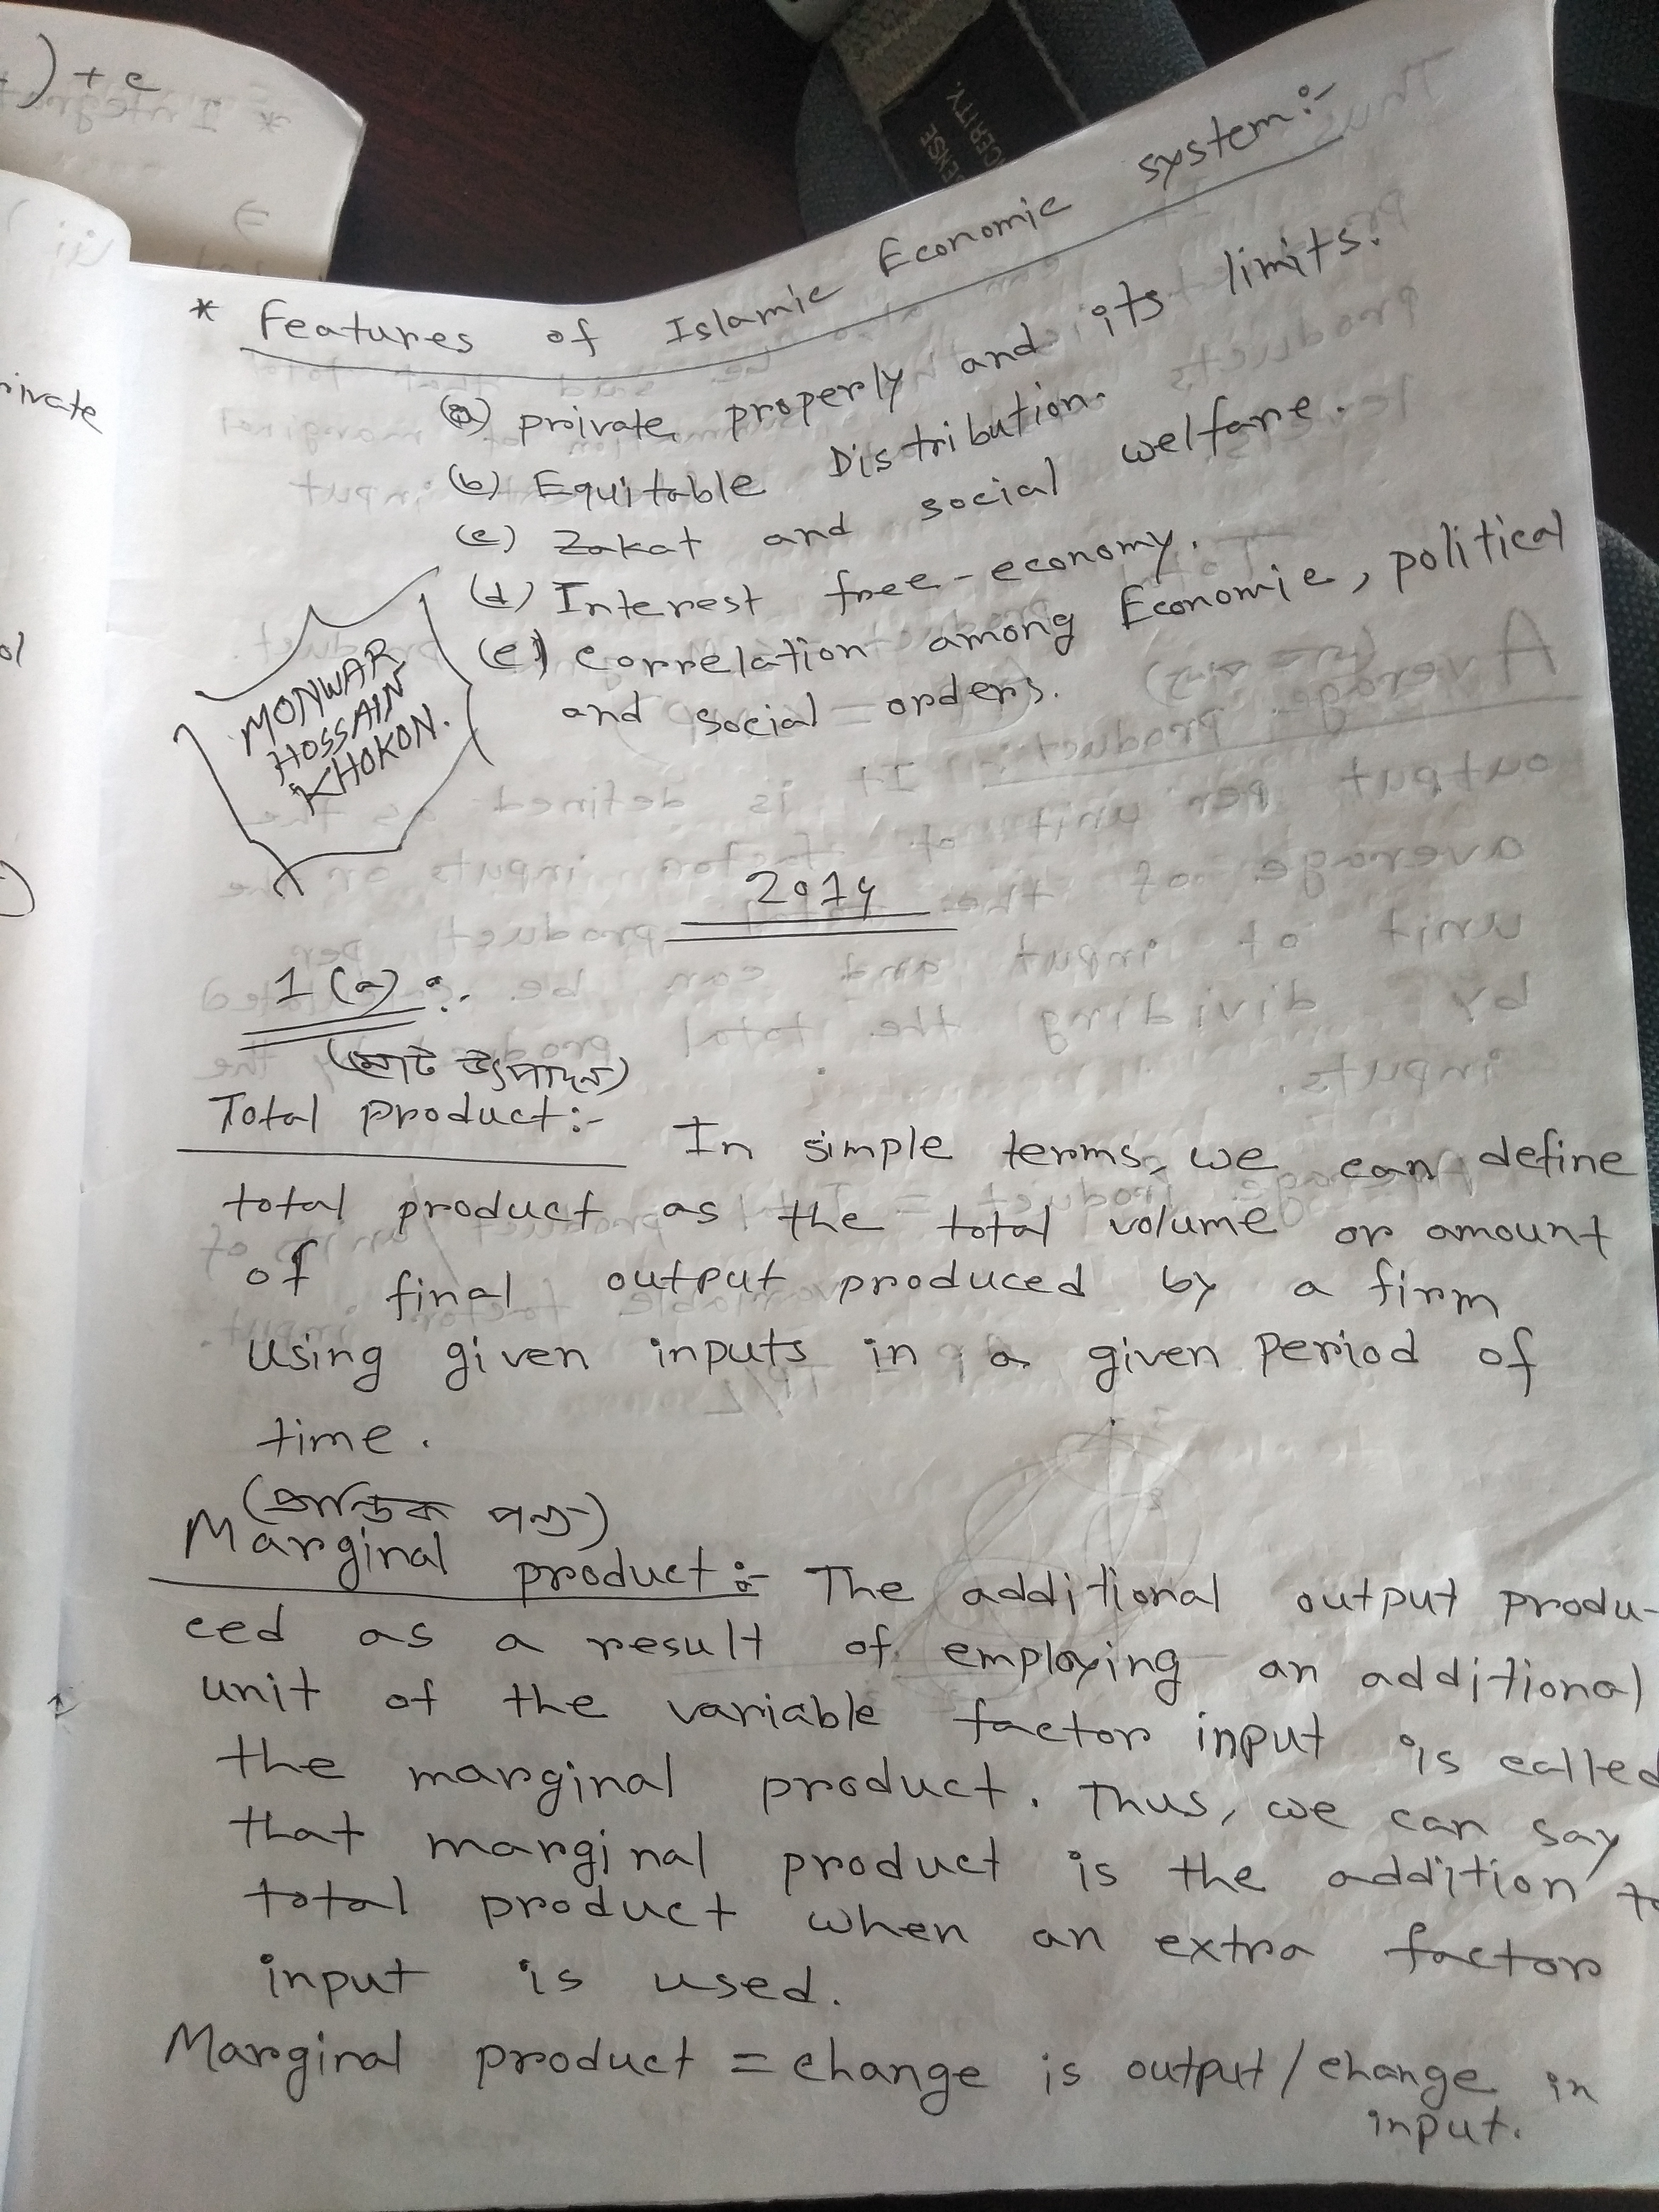 ) + c
rivate
ol
* Features of Islamic Economic system:-
(a) private properly and its limits.
(b) Equitable Distribution.
(c) Zakat and social welfare.
(d) Interest free-economy.
(e) correlation among Economic, political
and social orders.
MONWAR
HOSSAIN
KHOKON.
2014
1 (a) :.
(মোট উৎপাদন)
Total product:- In simple terms, we can define
total product as the total volume or amount
of final output produced by a firm
using given inputs in a given period of
time.
(প্রান্তিক পন্য)
Marginal product:- The additional output produ-
ced as a result of employing an additional
unit of the variable factor input is called
the marginal product. Thus, we can say
that marginal product is the addition to
total product when an extra factor
input is used.
Marginal product = change is output/change in
input.